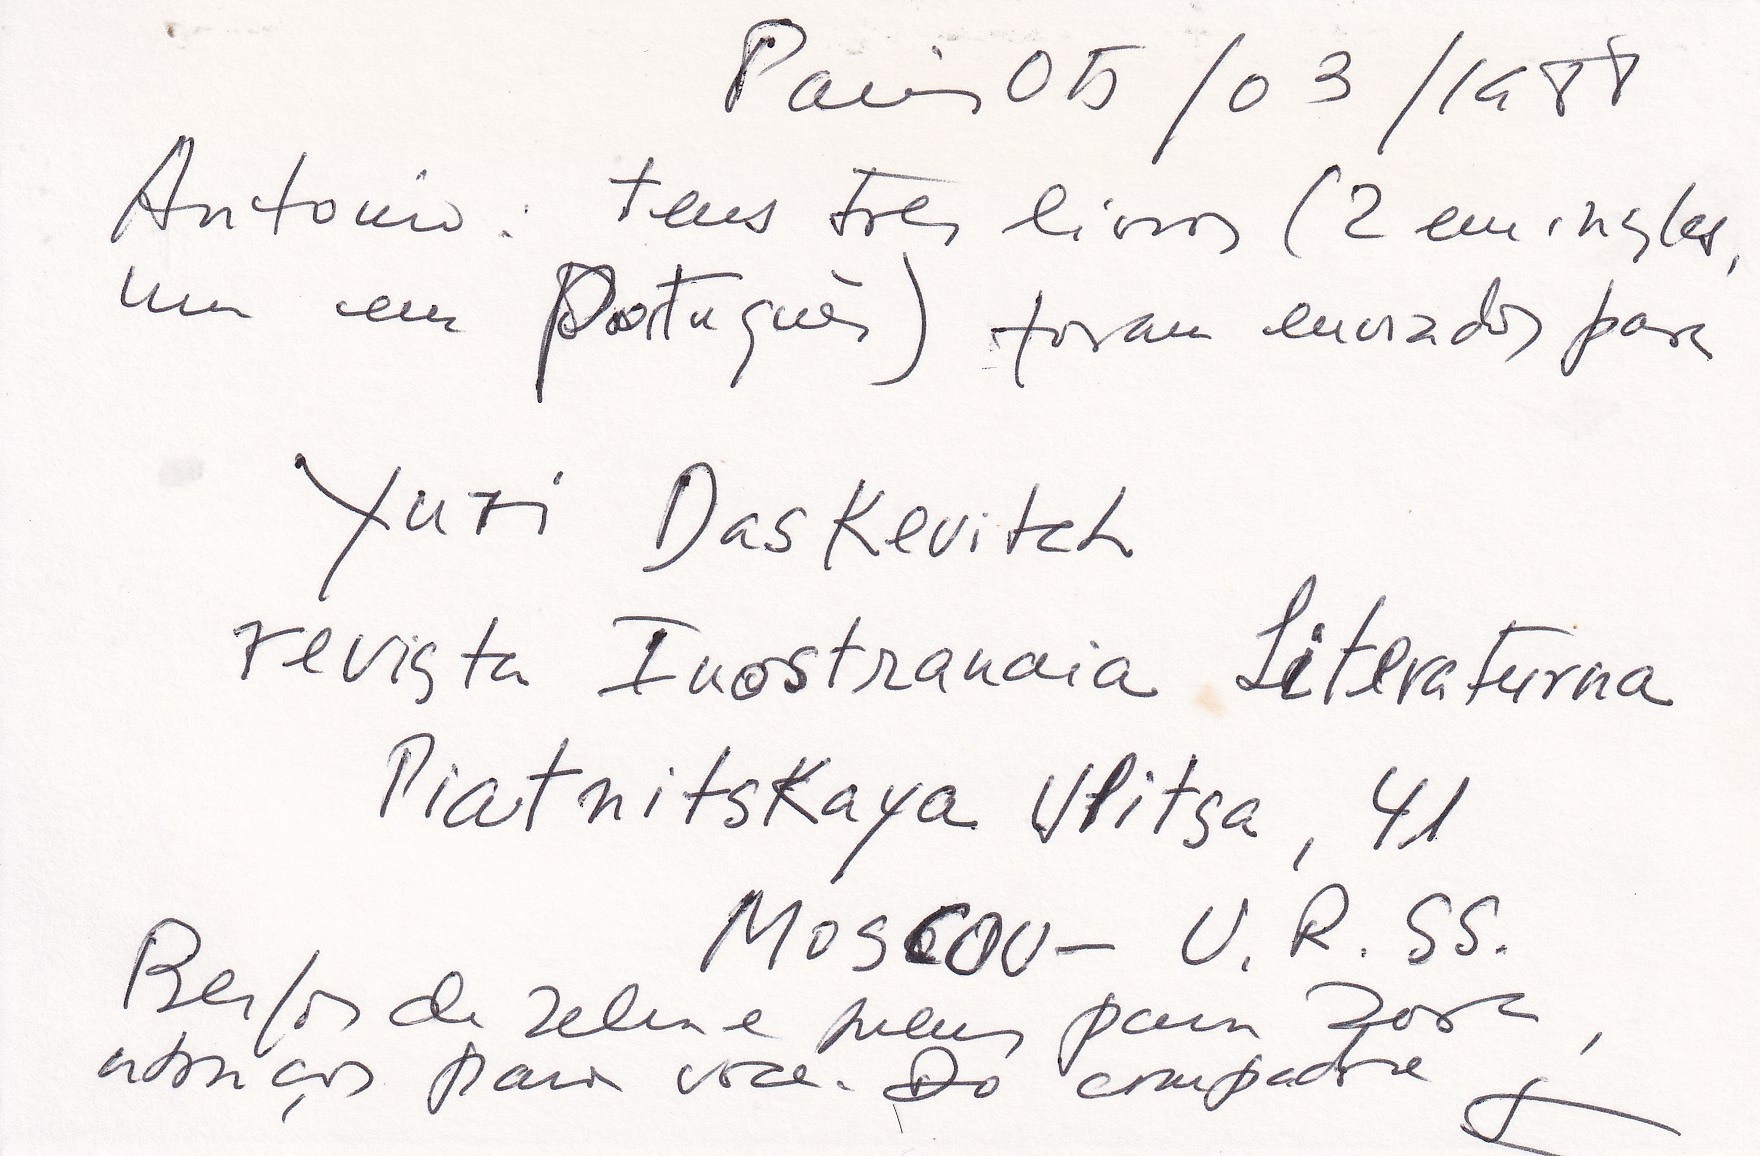 Paris 05/03/1988
Antonio: teus tres livros (2 em ingles,
um em Português) foram enviados para
Yuri Daskevitch
revista Inostranaia Literaturna
Piatnitskaya Ulitsa, 41
Moscou – U.R.SS.
Beijos de Zelia e meus para Zora,
abraços para voce. Do compadre